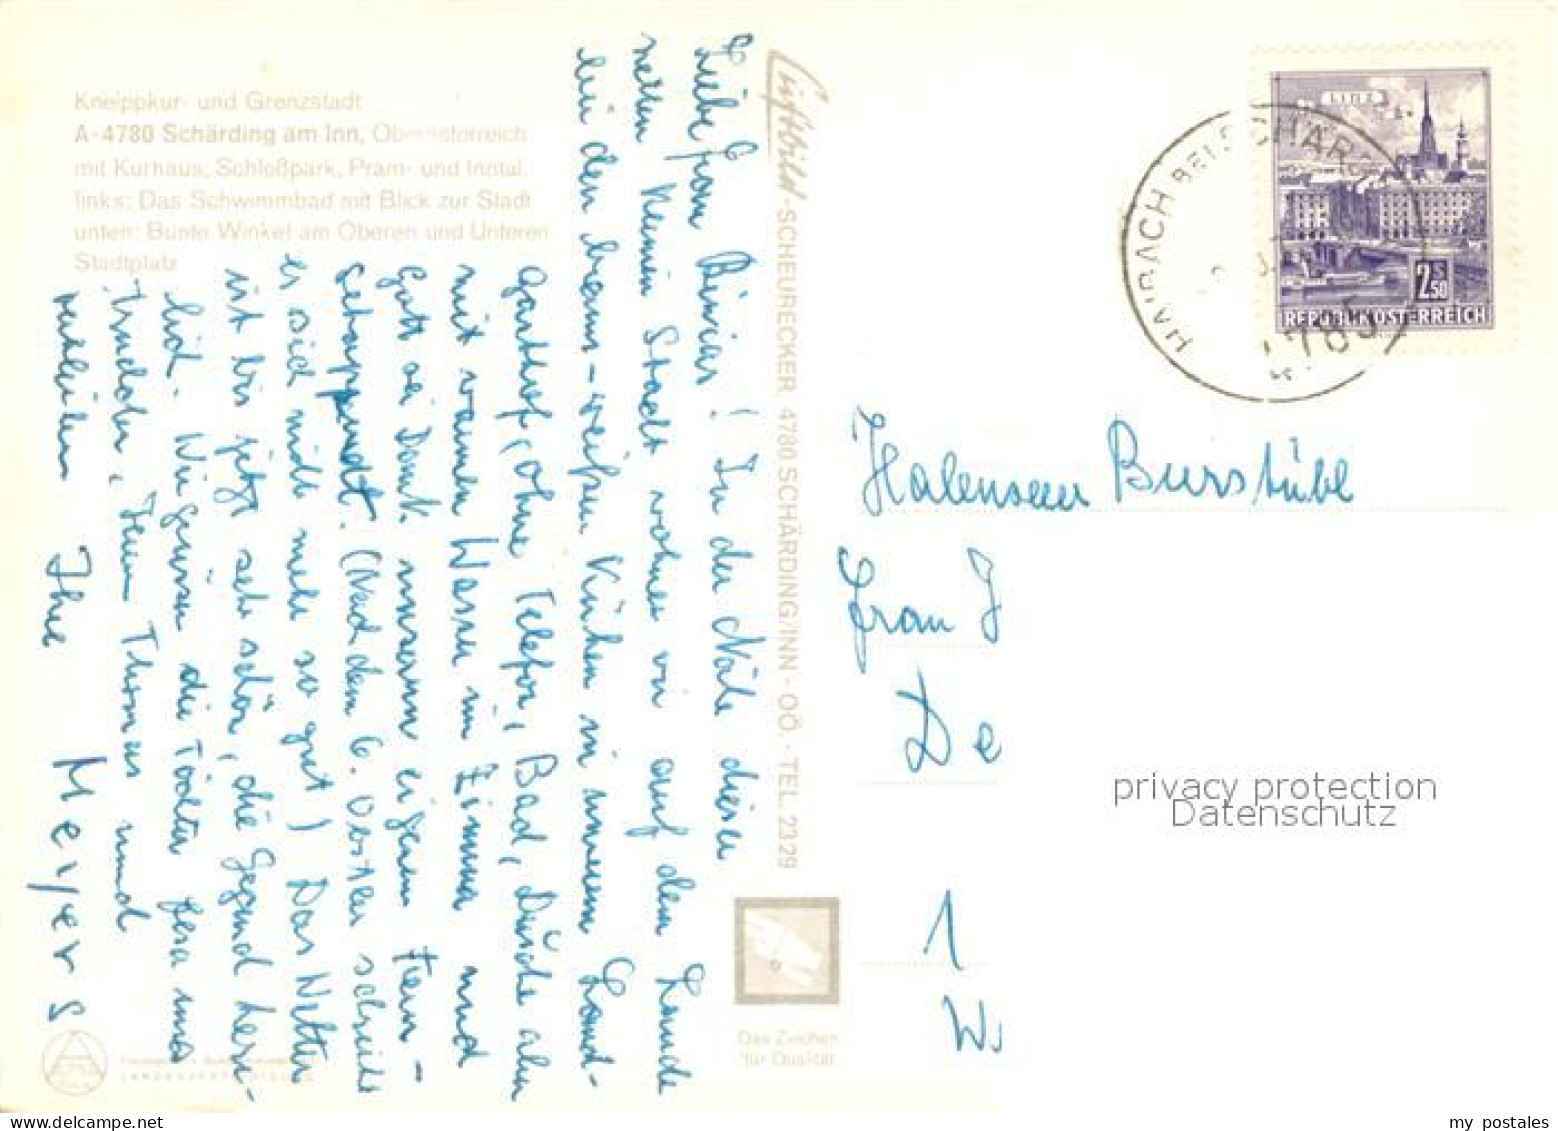 Kneippkur- und Grenzstadt
A-4780 Schärding am Inn, Oberösterreich
mit Kurhaus, Schloßpark, Pram- und Inntal.
links: Das Schwimmbad mit Blick zur Stadt
unten: Bunte Winkel am Oberen und Unteren
Stadtplatz
Liebe Frau ! In der Nähe dieser
netten kleinen Stadt wohnen wir auf dem Lande
bei den braun-weißen Kühen in unserem Land-
gasthof, ohne Telefon, Bad, Dusche aber
mit warmen Wasser im Zimmer und
Gott sei Dank unserem eigenen Fern-
(Nach dem 6. schreibt
es sich nicht mehr so gut) Das Wetter
ist bis jetzt sehr schön, die Gegend herr-
lich. Wir grüssen die Tochter
Thomas und
Ihre Meyers
Luftbild-SCHEURECKER, 4780 SCHÄRDING/INN - OÖ - TEL. 2329
Das Zeichen
für Qualität
LINZ
2 S 50
REPUBLIK ÖSTERREICH
HAIBACH BEI SCHÄRD
4785
Halenseer Burstübl
Frau J
De
1
W
privacy protection
Datenschutz
my postales